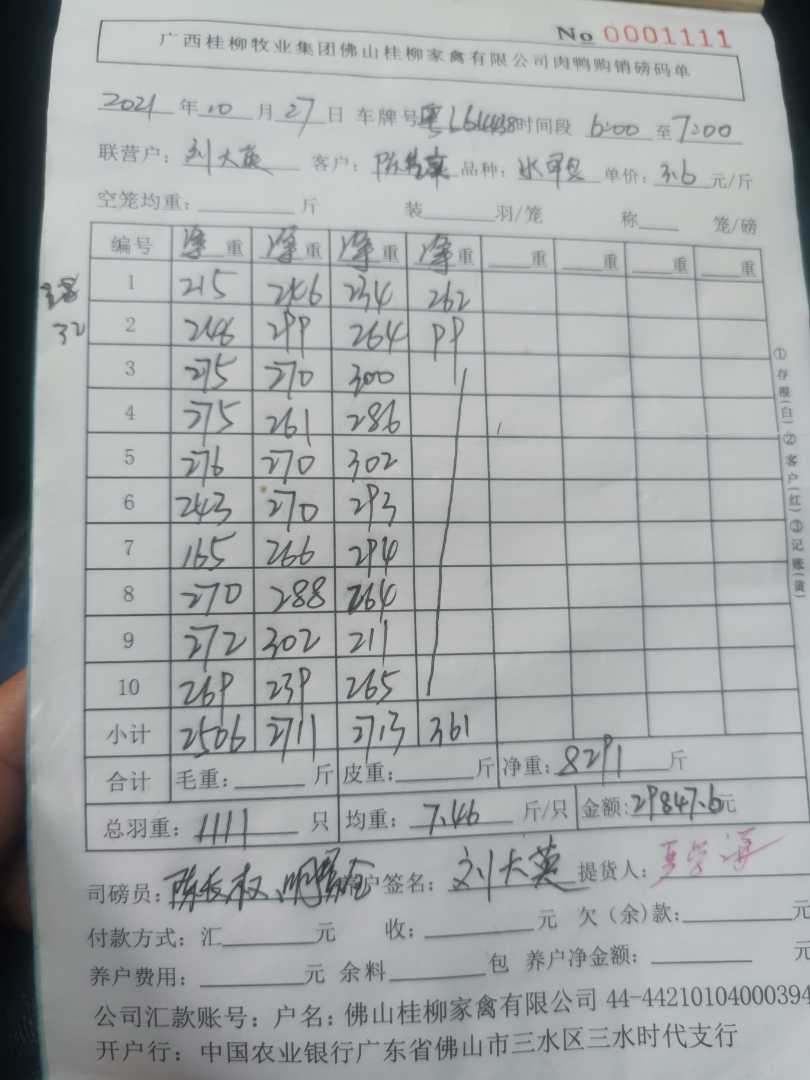 No 0001111
广西桂柳牧业集团佛山桂柳家禽有限公司肉鸭购销磅码单
2021年10月27日 车牌号 时间段 6:00至7:00
联营户：刘大英 客户： 品种： 单价：3.6元/斤
空笼均重：斤 装羽/笼 称笼/磅
编号 净重 净重 净重 净重 重 重 重 重
1 215 246 234 262
32
2 246 299 264 99
3 275 270 300
4 275 261 286
5 276 270 302
6 243 270 293
7 165 266 294
8 270 288 264
9 272 302 211
10 269 239 265
小计 2506 2711 2713 361
合计 毛重：斤 皮重：斤 净重：8291斤
总羽重：1111只 均重：7.46斤/只 金额：29847.6元
司磅员： 客户签名：刘大英 提货人：
付款方式：汇元 收：元 欠(余)款：元
养户费用：元 余料包 养户净金额：元
公司汇款账号：户名：佛山桂柳家禽有限公司 44-44210104000394
开户行：中国农业银行广东省佛山市三水区三水时代支行
①存根(白)②客户(红)③记账(黄)